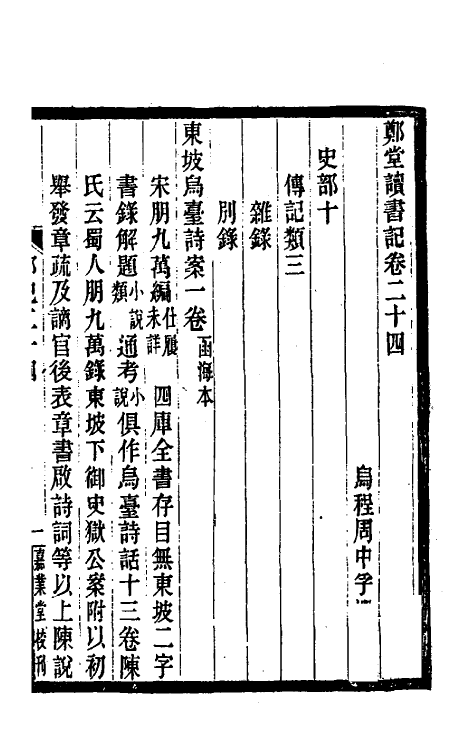 鄭堂讀書記卷二十四
烏程周中孚
史部十
傳記類三
雜錄
別錄
東坡烏臺詩案一卷函海本
宋朋九萬編仕履未詳 四庫全書存目無東坡二字
書錄解題小說類通考小說俱作烏臺詩話十三卷陳
氏云蜀人朋九萬錄東坡下御史獄公案附以初
舉發章疏及謫官後表章書啟詩詞等以上陳說
一 嘉業堂校刊